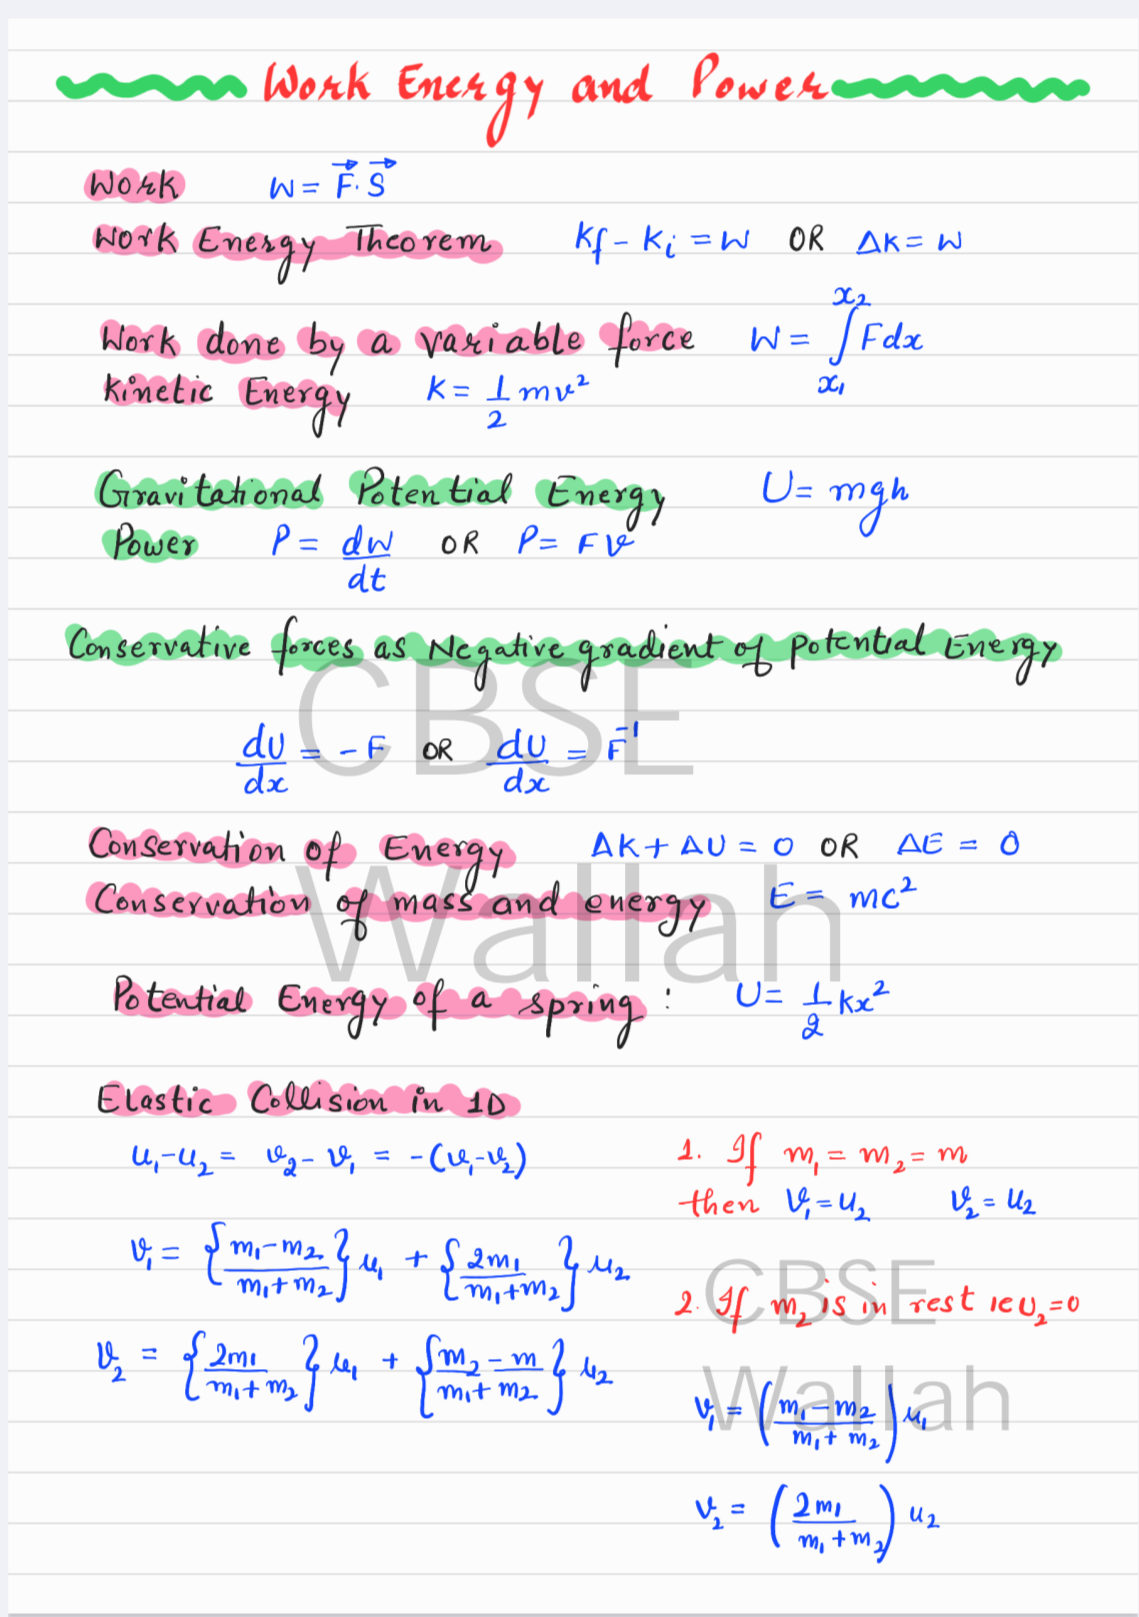 Work Energy and Power
Work W = F⃗. S⃗
Work Energy Theorem Kf - Ki = W OR ΔK = W
Work done by a variable force W = ∫ₓ₁ˣ₂ Fdx
Kinetic Energy K = 1/2 mv²
Gravitational Potential Energy U = mgh
Power P = dW/dt OR P = FV
Conservative forces as Negative gradient of potential Energy
dU/dx = -F OR dU/dx = F⁻¹
Conservation of Energy ΔK + ΔU = 0 OR ΔE = 0
Conservation of mass and energy E = mc²
Potential Energy of a spring : U = 1/2 kx²
Elastic Collision in 1D
u₁-u₂ = v₂-v₁ = -(v₁-v₂)
v₁ = {m₁-m₂/m₁+m₂} u₁ + {2m₁/m₁+m₂} u₂
v₂ = {2m₁/m₁+m₂} u₁ + {m₂-m/m₁+m₂} u₂
1. If m₁ = m₂ = m
then v₁ = u₂ v₂ = u₂
2. If m₂ is in rest ie u₂=0
v₁ = (m₁-m₂/m₁+m₂) u₁
v₂ = (2m₁/m₁+m₂) u₂
CBSE
Wallah
CBSE
Wallah